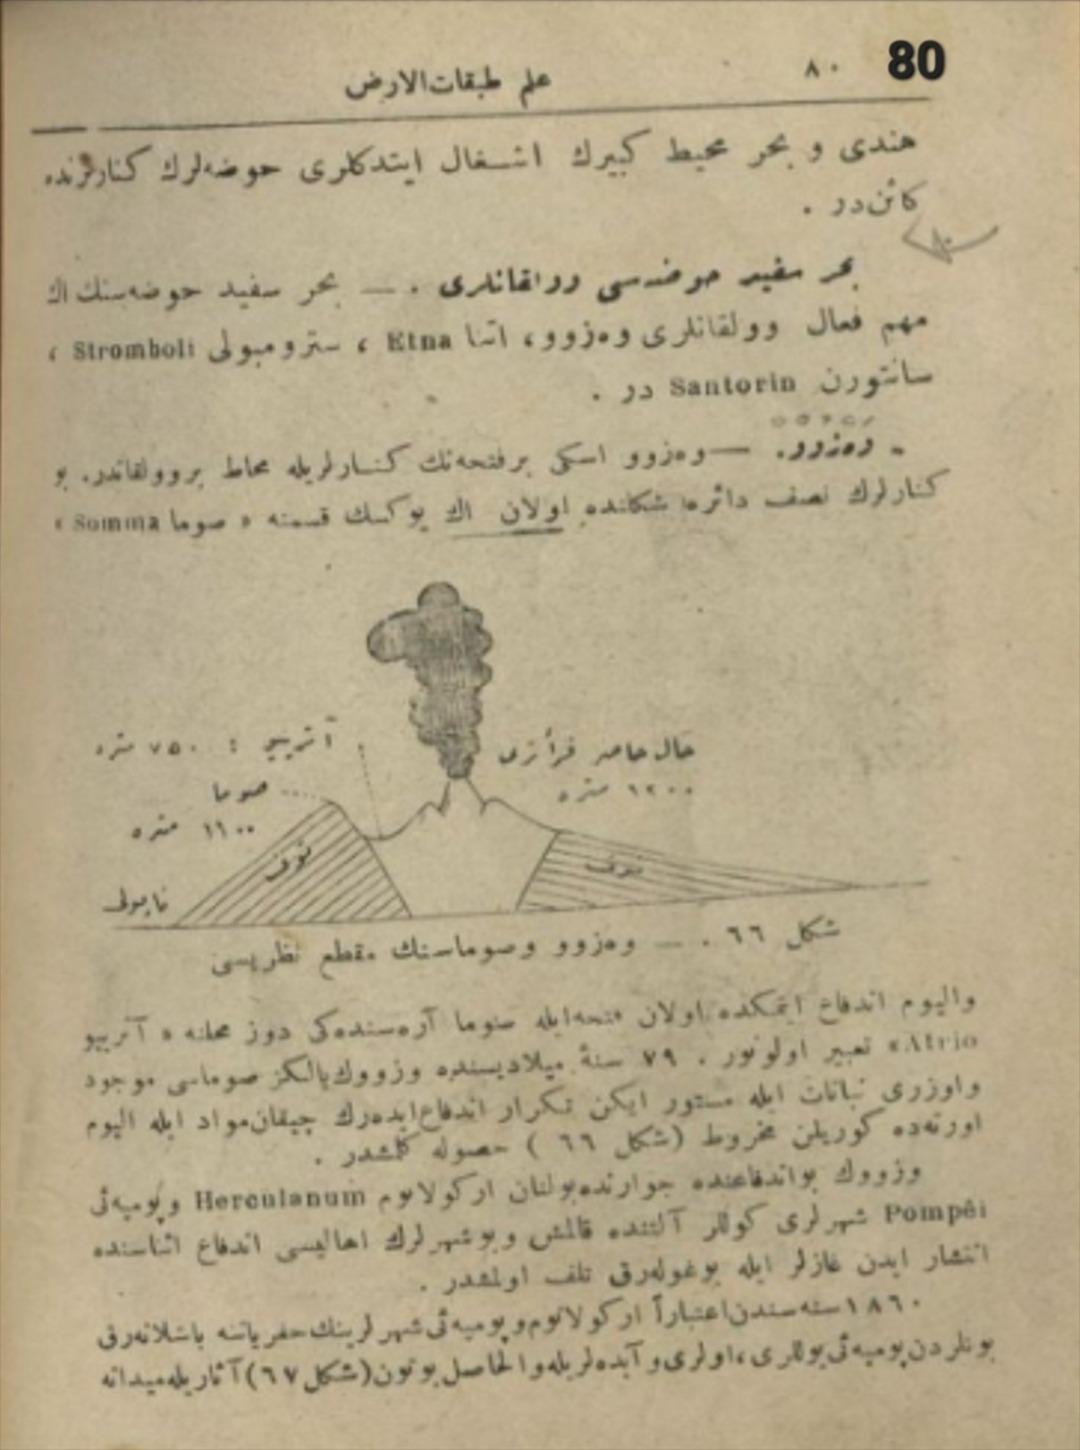 80
علم طبقات‌الارض ٨٠
هندی و بحر محیط کبیرك اشـغال ایتدکلری حوضه‌لرك کنارلرنده
کائن‌در .
بحر سفید حوضه‌سی وولقانلری . — بحر سفید حوضه‌سنك اك
مهم فعال وولقانلری وه‌زوو، اتنا Etna ، سترومبولی Stromboli ،
سانتورن Santorin در .
وه‌زوو. — وه‌زوو اسکی برفتحه‌نك کنـارلریله محاط بروولقاندر. بو
کنارلرك نصف دائره شکلنده اولان اك یوکسك قسمنه « صوما Somma »
آتریو : ٧٥٠ متره
حال حاضر
١٢٠٠ متره
صوما
١١٠٠ متره
توف
توف
ناپولی
شکل ٦٦ . — وه‌زوو وصوماسنك مقطع نظریسی
والیوم اندفاع ایتمکده اولان فتحه‌ایله صوما آره‌سنده‌کی دوز محلنه « آتریو
Atrio» تعبیر اولونور . ٧٩ سنهٔ میلادیسنده وزووك‌یالکز صوماسی موجود
واوزری نباتات ایله مستور ایکن تکرار اندفاع‌ایده‌رك چیقان‌مواد ایله الیوم
اورته‌ده کوریلن مخروط (شکل ٦٦ ) حصوله کلمشدر .
وزووك بواندفاعنده جوارنده‌بولنان ارکولانوم Herculanum وپومپه‌ئی
Pompêi شهرلری کوللر آلتنده قالمش وبوشهرلرك اهالیسی اندفاع اثناسنده
انتشار ایدن غازلر ایله بوغوله‌رق تلف اولمشدر .
١٨٦٠ سنه‌سندن‌اعتباراً ارکولانوم‌وپومپه‌ئی شهرلرینك‌حفریاتنه باشلانه‌رق
بونلردن‌پومپه‌ئی‌یوللری،اولری‌وآبده‌لریله‌والحاصل‌بوتون(شکل٦٧)آثاریله‌میدانه